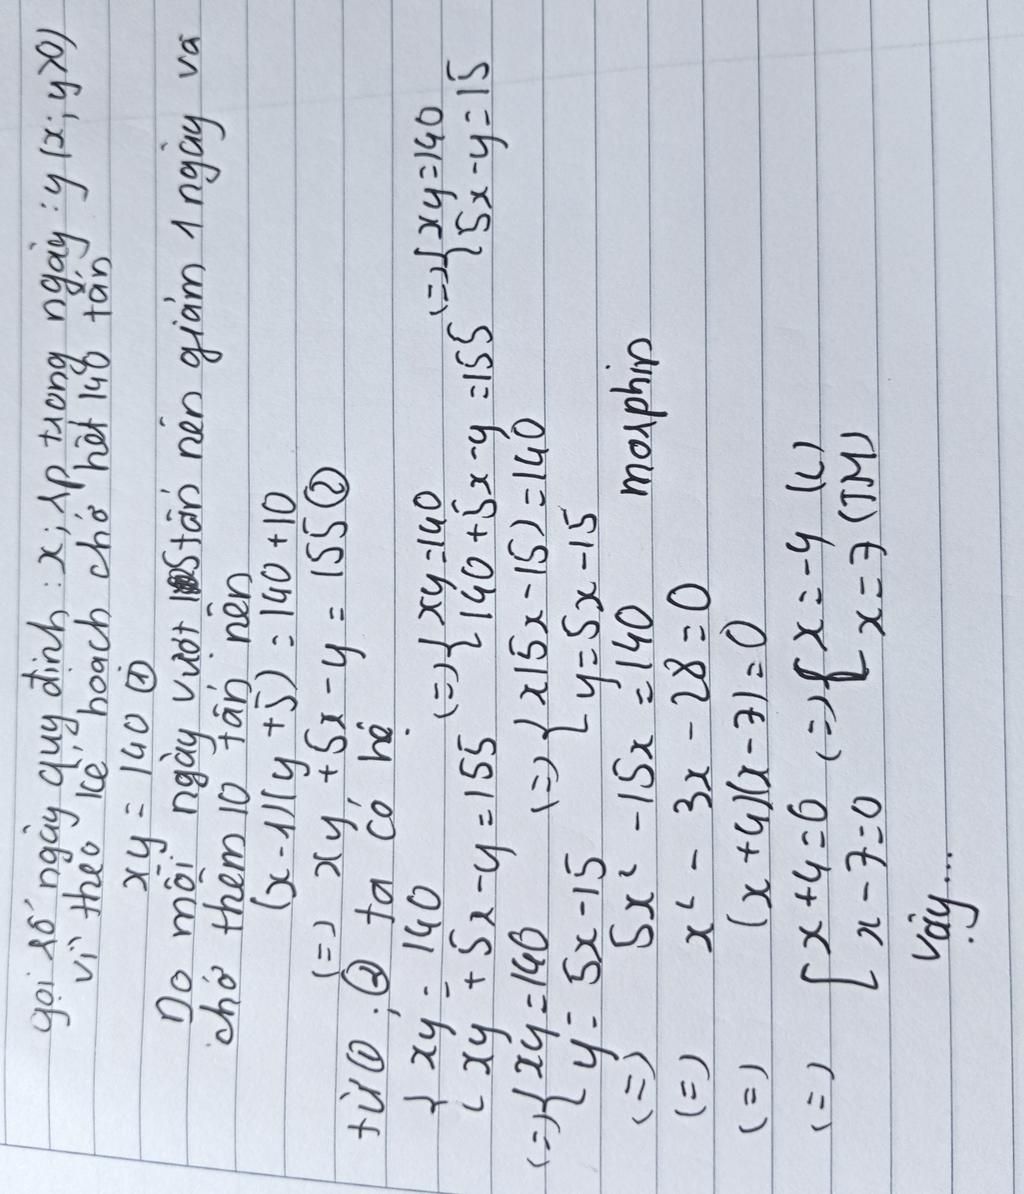 gọi số ngày quy định : x ; sp trong ngày : y (x ; y>0)
vì theo kế hoạch chở hết 140 tấn
xy = 140 ①
Do mỗi ngày vượt 5 tấn nên giảm 1 ngày và
chở thêm 10 tấn nên
(x-1)(y+5) = 140+10
(=) xy + 5x - y = 155 ②
từ ①, ② ta có hệ
{ xy = 140 (=) { xy=140 (=) { xy=140
{ xy + 5x - y = 155 { 140+5x-y =155 { 5x-y=15
(=) { xy=140 (=) { x(5x-15)=140
{ y= 5x-15 { y=5x-15
(=) 5x² - 15x = 140 morphin
(=) x² - 3x - 28 = 0
(=) (x+4)(x-7)=0
(=) [ x+4=0 (=) [ x=-4 (L)
[ x-7=0 [ x=7 (TM)
Vậy...